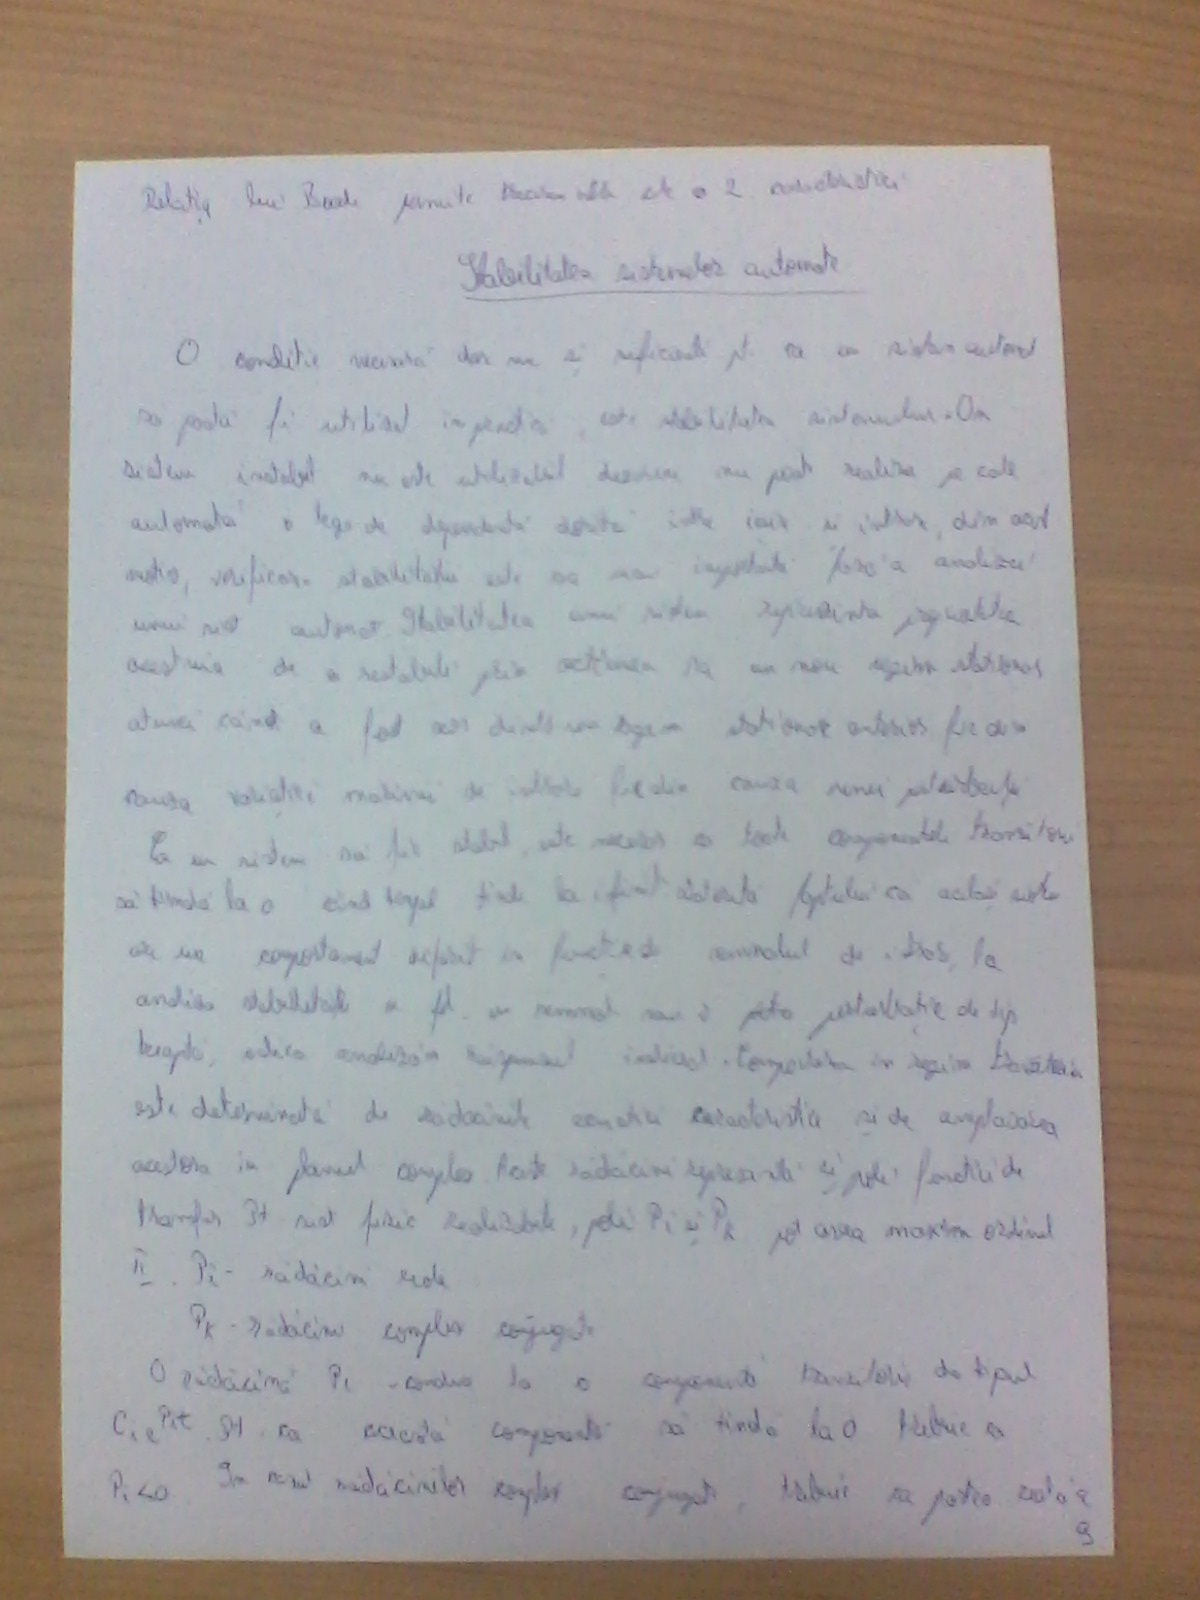 Relația lui Bode permite trecerea de la o 2 caracteristici
Stabilitatea sistemelor automate
O conditie necesară dar nu și suficientă pt. ca un sistem automat
sa poată fi utilizat in practică, este stabilitatea sistemului. Un
sistem instabil nu este utilizabil deoarece nu poate realiza pe cale
automată o lege de dependentă dorită intre ieșire si intrare, din acest
motiv, verificarea stabilitatii este cea mai importantă fază a analizei
unui sist automat. Stabilitatea unui sistem reprezinta proprietatea
acestuia de a restabili prin actiunea sa un nou regim stationar
atunci când a fost scos dintr-un regim stationar anterior fie din
cauza variației mărimii de intrare fie din cauza unei perturbații
Ca un sistem să fie stabil, este necesar ca toate componentele tranzitorii
să tindă la 0 când timpul tinde la infinit datorită faptului ca același sistem
are un comportament diferit in funcție de semnalul de intrare, la
analiza stabilității se fol. un semnal sau o perturbație de tip
treaptă, adica analizăm răspunsul indicial. Comportarea in regim tranzitoriu
este determinată de rădăcinile ecuatiei caracteristice și de amplasarea
acestora in planul complex. Aceste rădăcini reprezintă și polii functiei de
transfer. Pt sist fizic realizabile, polii Pi și Pk pot avea maxim ordinul
II. Pi - rădăcini reale
Pk - rădăcini complex conjugate
O rădăcină Pi conduce la o componentă tranzitorie de tipul
Ci e^Pit. Pt ca această componentă să tindă la 0 trebuie ca
Pi<0. In cazul rădăcinilor complex conjugate, trebuie ca partea reală a
9